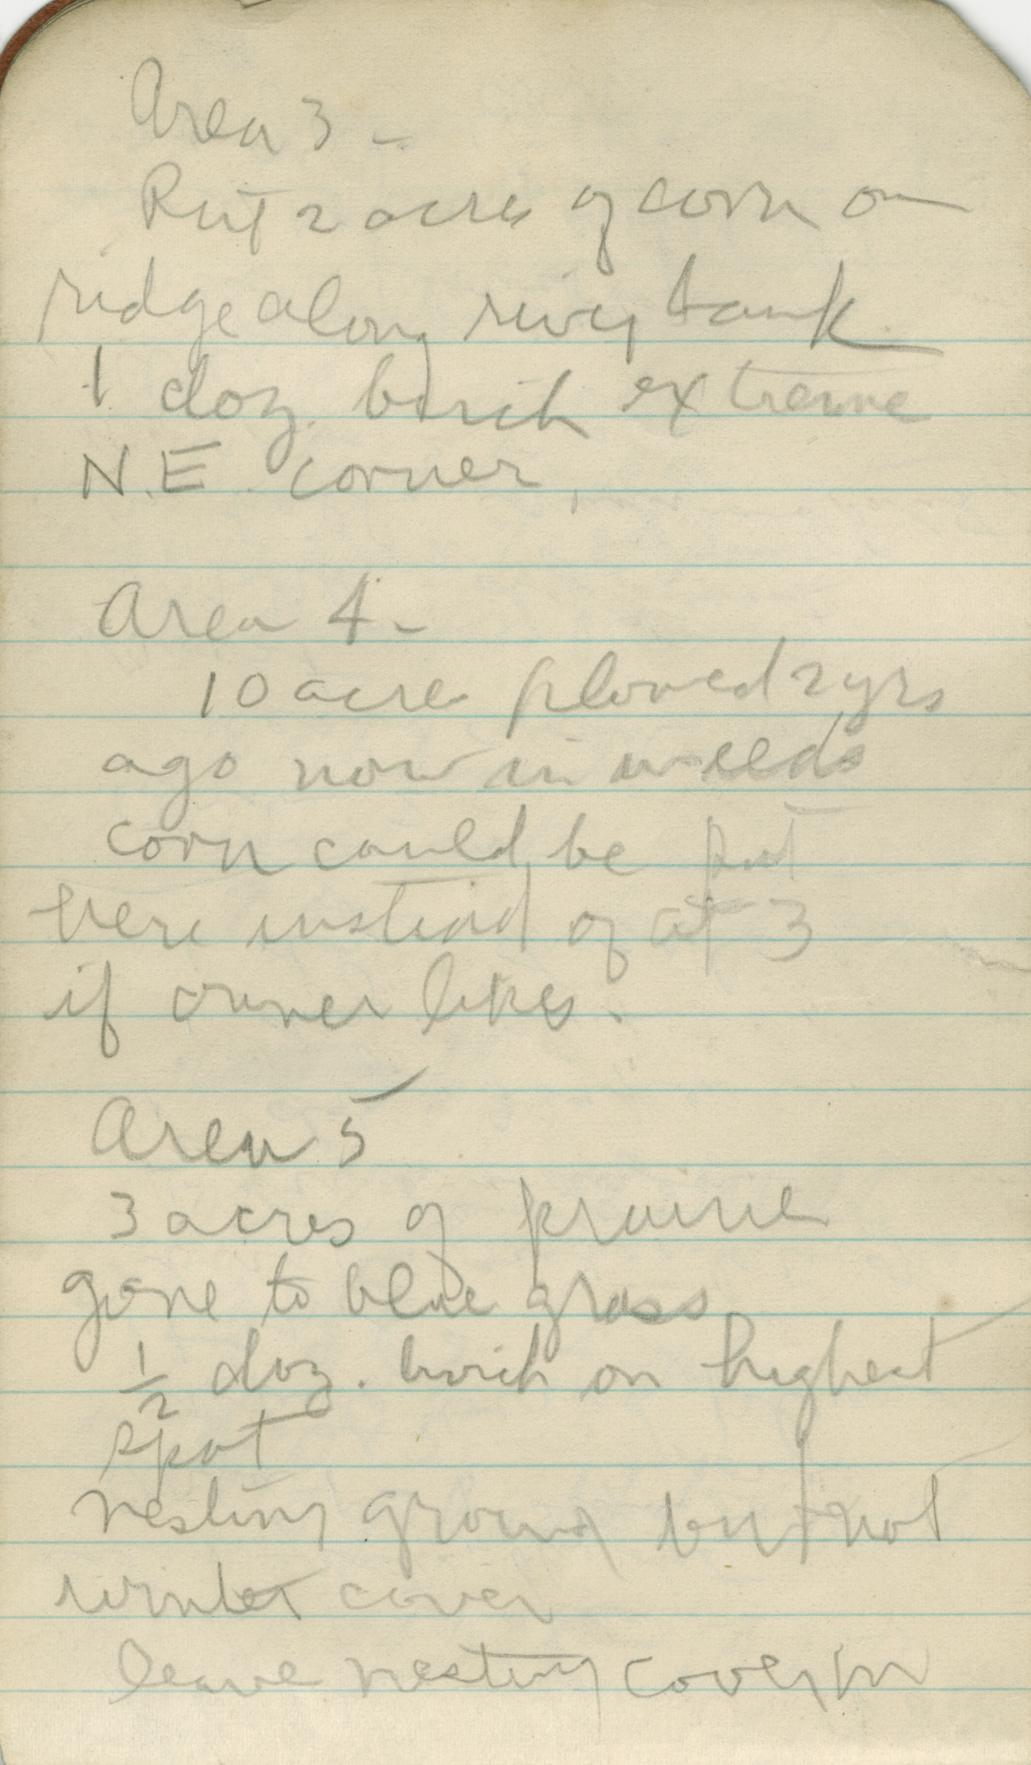 Area 3 -
Put 2 acres of corn on
ridge along river bank
1 doz. birch extreme
N.E. corner,
Area 4 -
10 acre plowed 2 yrs
ago now in weeds
corn could be put
here instead of at 3
if owner likes.
Area 5
3 acres of prairie
gone to blue grass
1/2 doz. birch on highest
spot
nesting ground but not
winter cover
leave nesting cover